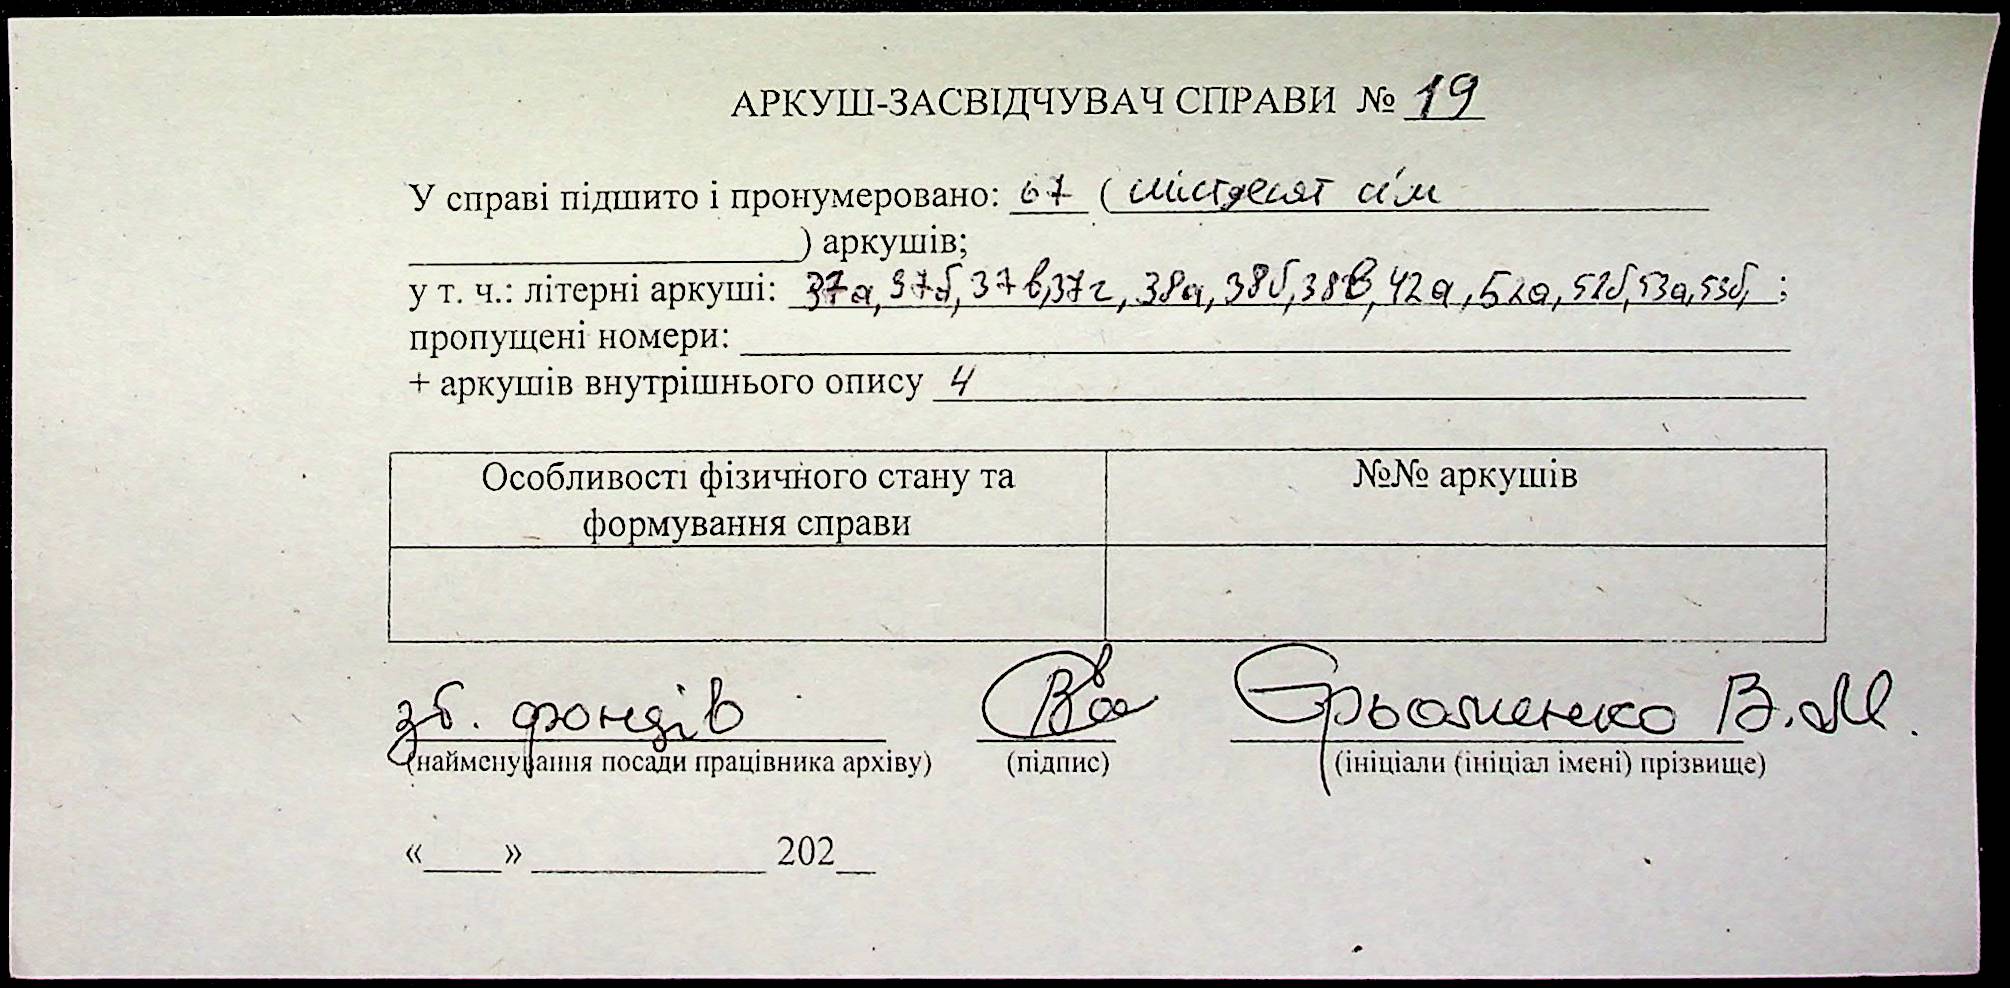 АРКУШ-ЗАСВІДЧУВАЧ СПРАВИ № 19
У справі підшито і пронумеровано: 67 (шістдесят сім
) аркушів;
у т. ч.: літерні аркуші: 37а, 37б, 37в, 37г, 38а, 38б, 38в, 42а, 52а, 52б, 53а, 53б, ;
пропущені номери:
+ аркушів внутрішнього опису 4
Особливості фізичного стану та формування справи
№№ аркушів
зб. фондів В. М.
(найменування посади працівника архіву) (підпис) (ініціали (ініціал імені) прізвище)
« » 202